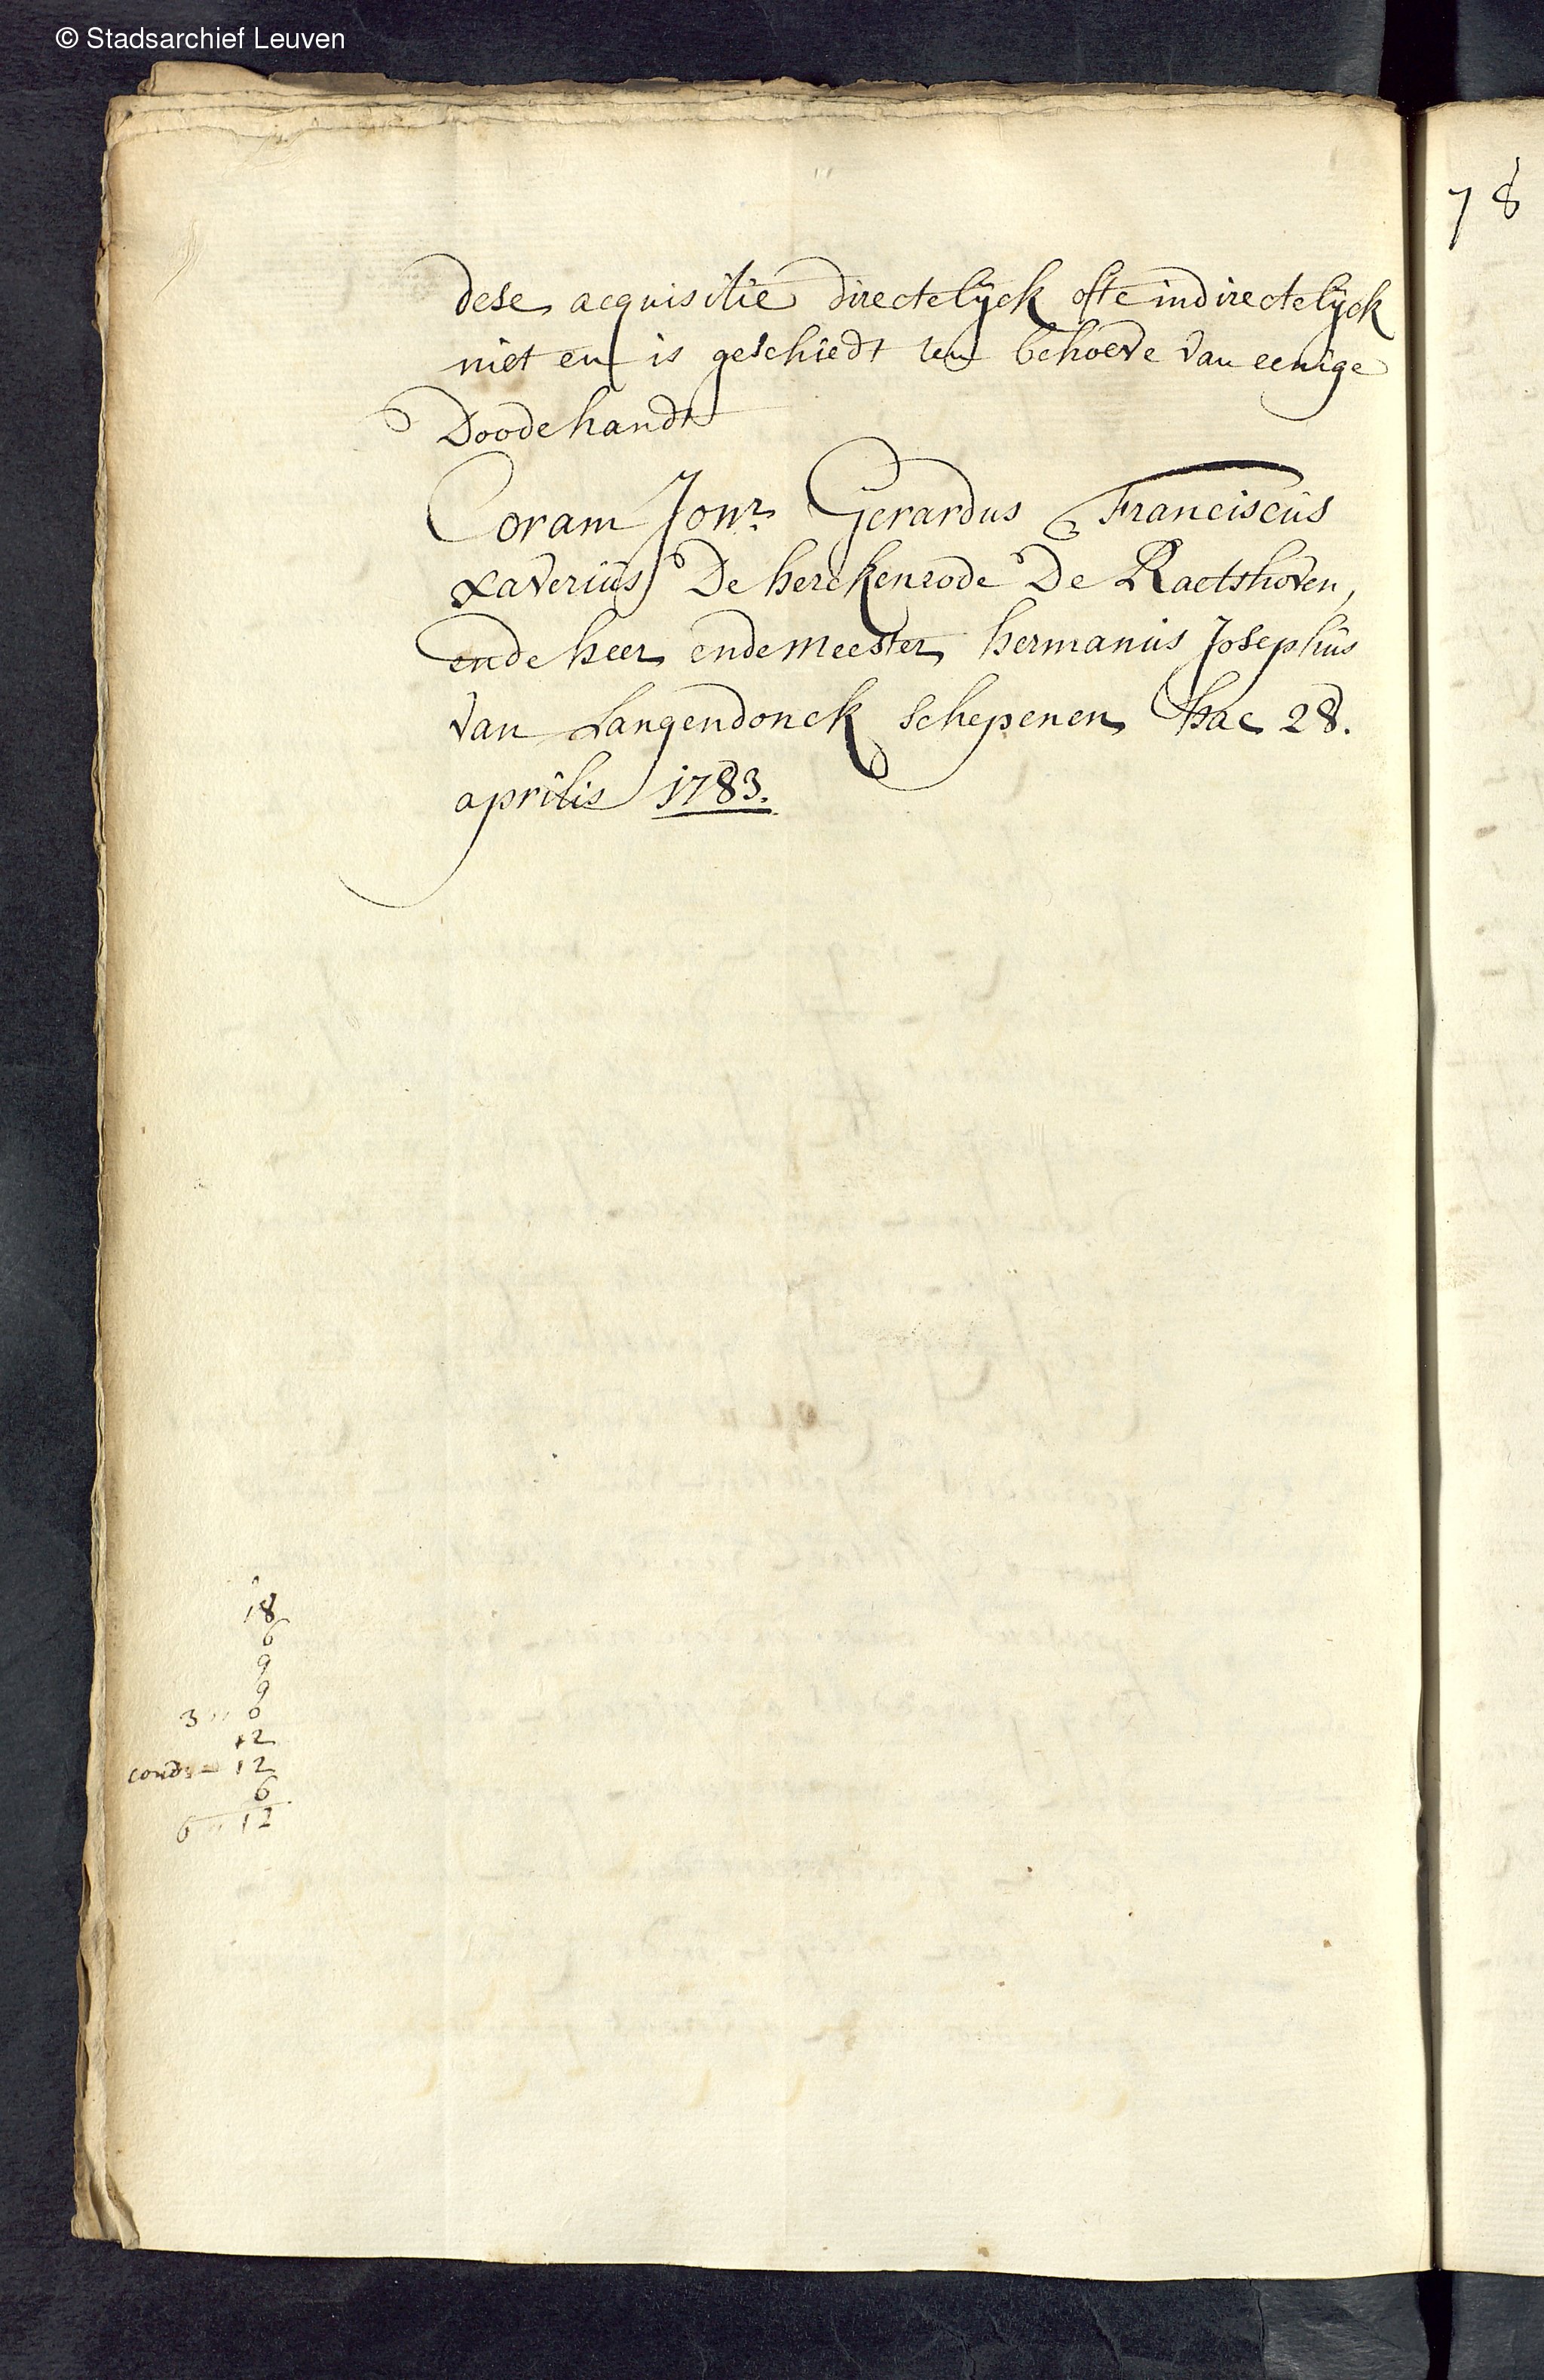 © Stadsarchief Leuven
78
dese acquisitie directelijck ofte indirectelijck
niet en is geschiedt ten behoeve van eenige
Doode handt
Coram Jonr Gerardus Franciscus
xaverius De herckenrode De Raetshoven,
ende heer ende meester hermanus Josephus
van Langendonck schepenen hac 28.
aprilis 1783.
18
6
9
9
3 ,, 6
12
cond: - 12
6
6 ,, 12